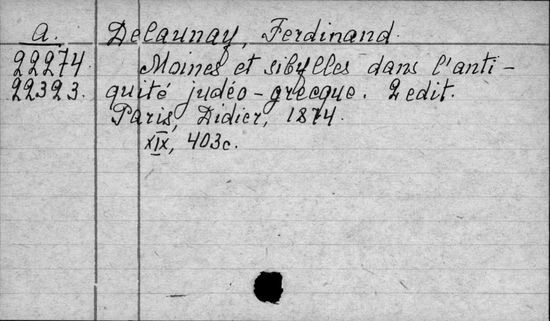 a. Delaunay, Ferdinand.
22274. Moines et sibylles dans l'anti-
22323. quité judéo-grecque. 2 edit.
Paris, Didier, 1874.
XIX, 403c.